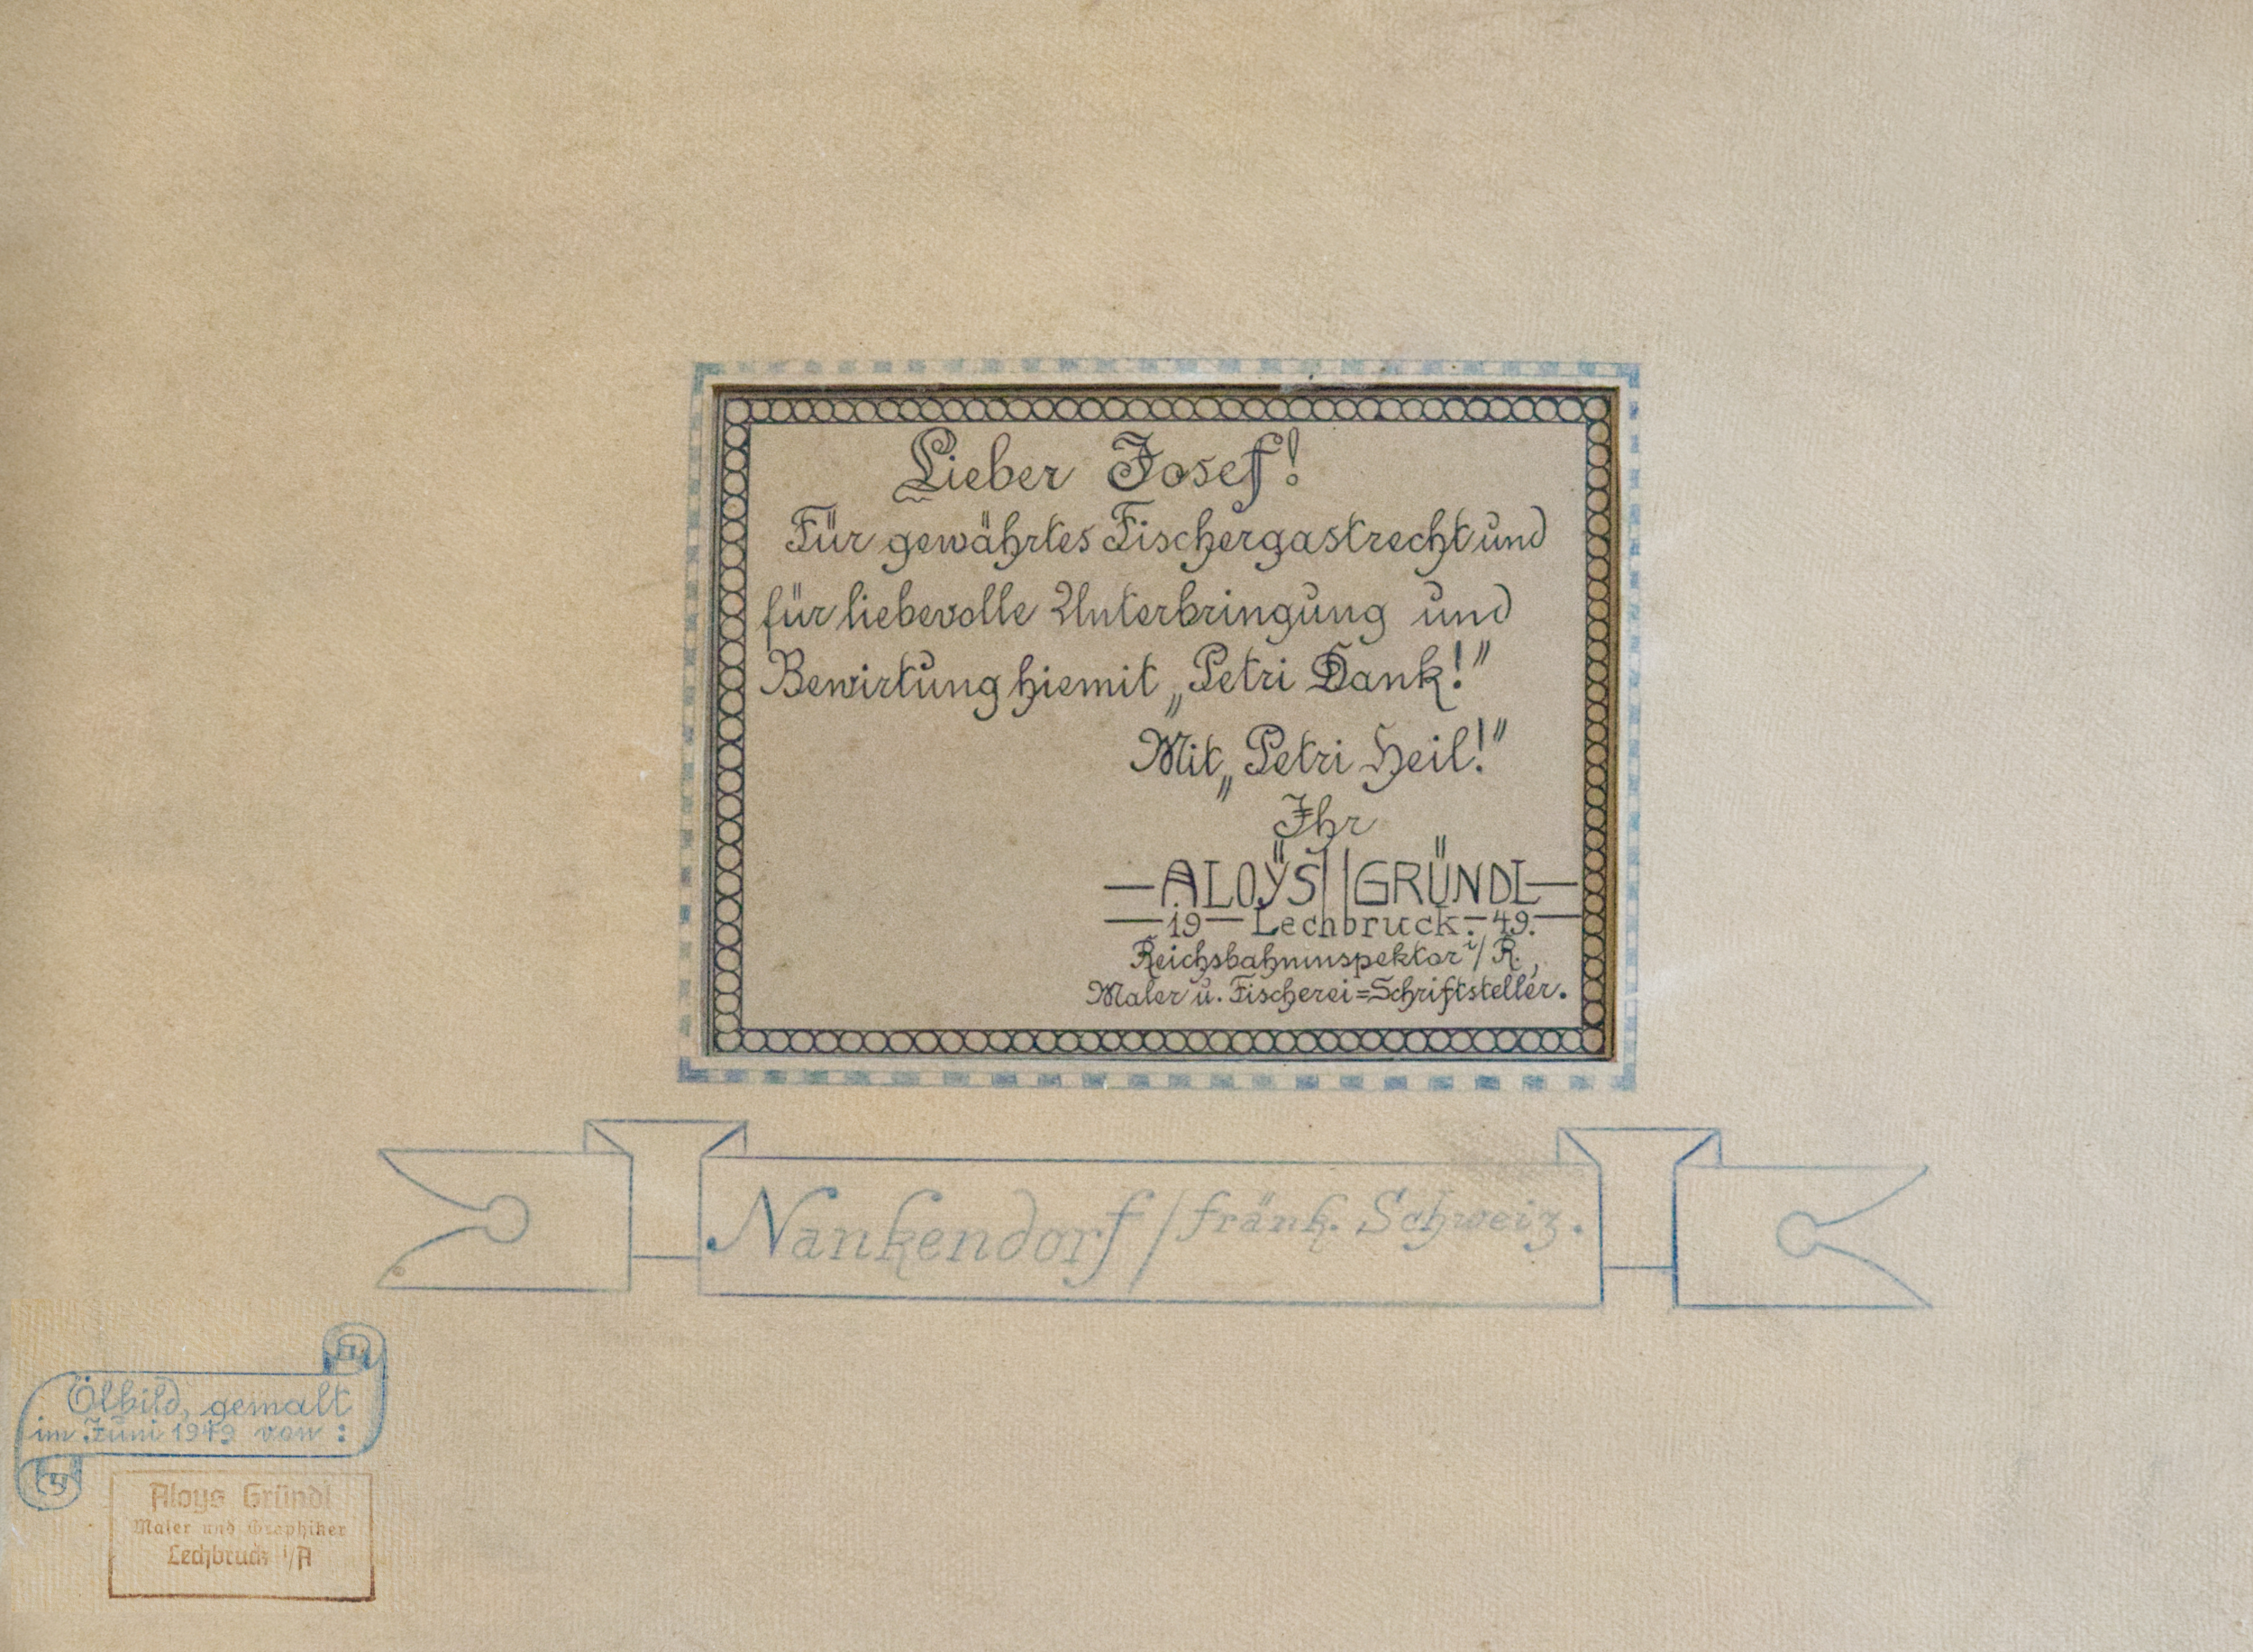 Lieber Josef!
Für gewährtes Fischergastrecht und
für liebevolle Unterbringung und
Bewirtung hiemit „Petri Dank!"
Mit „Petri Heil!"
Ihr
—ALOŸS||GRÜNDL—
—19— Lechbruck.— 49.—
Reichsbahninspektor i/R.,
Maler u. Fischerei=Schriftsteller.
Nankendorf / fränk. Schweiz.
Ölbild, gemalt
im Juni 1949 von:
Aloys Gründl
Maler und Graphiker
Lechbruck i/A